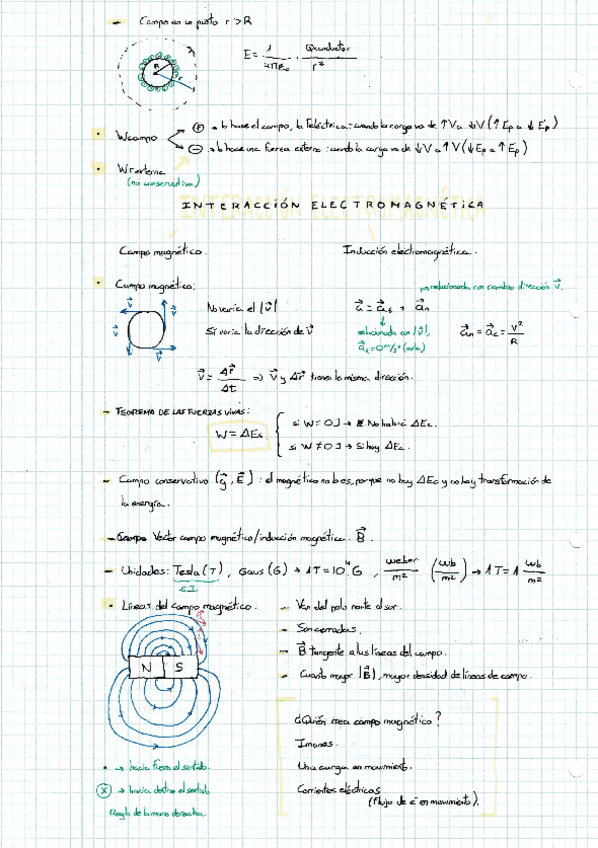 - Campo en un punto r > R
R
r
E = 1/4πε₀ · Qconductor/r²
• Wcampo
⊕ → lo hace el campo, la Feléctrica: cuando la carga va de ↑V a ↓V (↑Ep a ↓Ep)
⊖ → lo hace una fuerza externa: cuando la carga va de ↓V a ↑V (↓Ep a ↑Ep)
• WFexterna
(no conservativa)
INTERACCIÓN ELECTROMAGNÉTICA
Campo magnético.
Inducción electromagnética.
• Campo magnético:
→ relacionada con cambio dirección v⃗.
v⃗ v⃗ v⃗ v⃗
No varía el |v⃗|
Sí varía la dirección de v⃗
a⃗ = a⃗t + a⃗n
relacionada con |v⃗|,
a⃗t = 0 m/s² (nula)
a⃗n = a⃗c = v²/R
v⃗ = Δr⃗/Δt ⇒ v⃗ y Δr⃗ tienen la misma dirección.
- TEOREMA DE LAS FUERZAS VIVAS:
W = ΔEc
si W = 0J → No habrá ΔEc.
si W ≠ 0J → Sí hay ΔEc.
- Campo conservativo (g⃗, E⃗): el magnético no lo es, porque no hay ΔEc y no hay transformación de
la energía.
- Campo Vector campo magnético/inducción magnética. B⃗
- Unidades: Tesla (T), Gaus (G) → 1T = 10⁴ G, weber/m² (wb/m²) → 1T = 1 wb/m²
SI
• Líneas del campo magnético:
- Van del polo norte al sur.
- Son cerradas.
- B⃗ tangente a las líneas del campo.
- Cuanto mayor |B⃗|, mayor densidad de líneas de campo.
N S
¿Quién crea campo magnético?
Imanes.
Una carga en movimiento.
Corrientes eléctricas
(flujo de e⁻ en movimiento).
• → hacia fuera el sentido.
ⓧ → hacia dentro el sentido
Regla de la mano derecha.